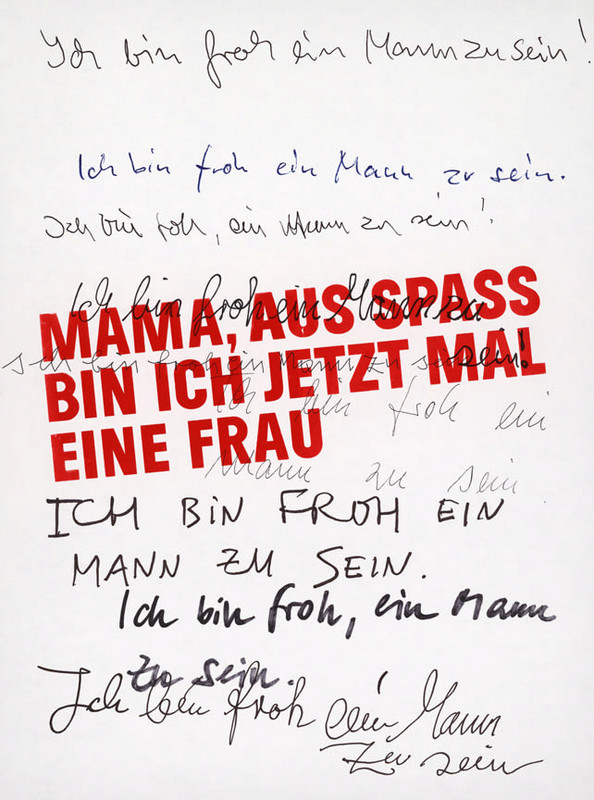 Ich bin froh ein Mann zu sein!
Ich bin froh ein Mann zu sein.
Ich bin froh, ein Mann zu sein!
Ich bin froh ein Mann zu
sein!
MAMA, AUS SPASS
Ich bin froh ein Mann zu sein
BIN ICH JETZT MAL
Ich bin froh ein
EINE FRAU
Mann zu sein
ICH BIN FROH EIN
MANN ZU SEIN.
Ich bin froh, ein Mann
zu sein.
Ich bin froh ein Mann
zu sein